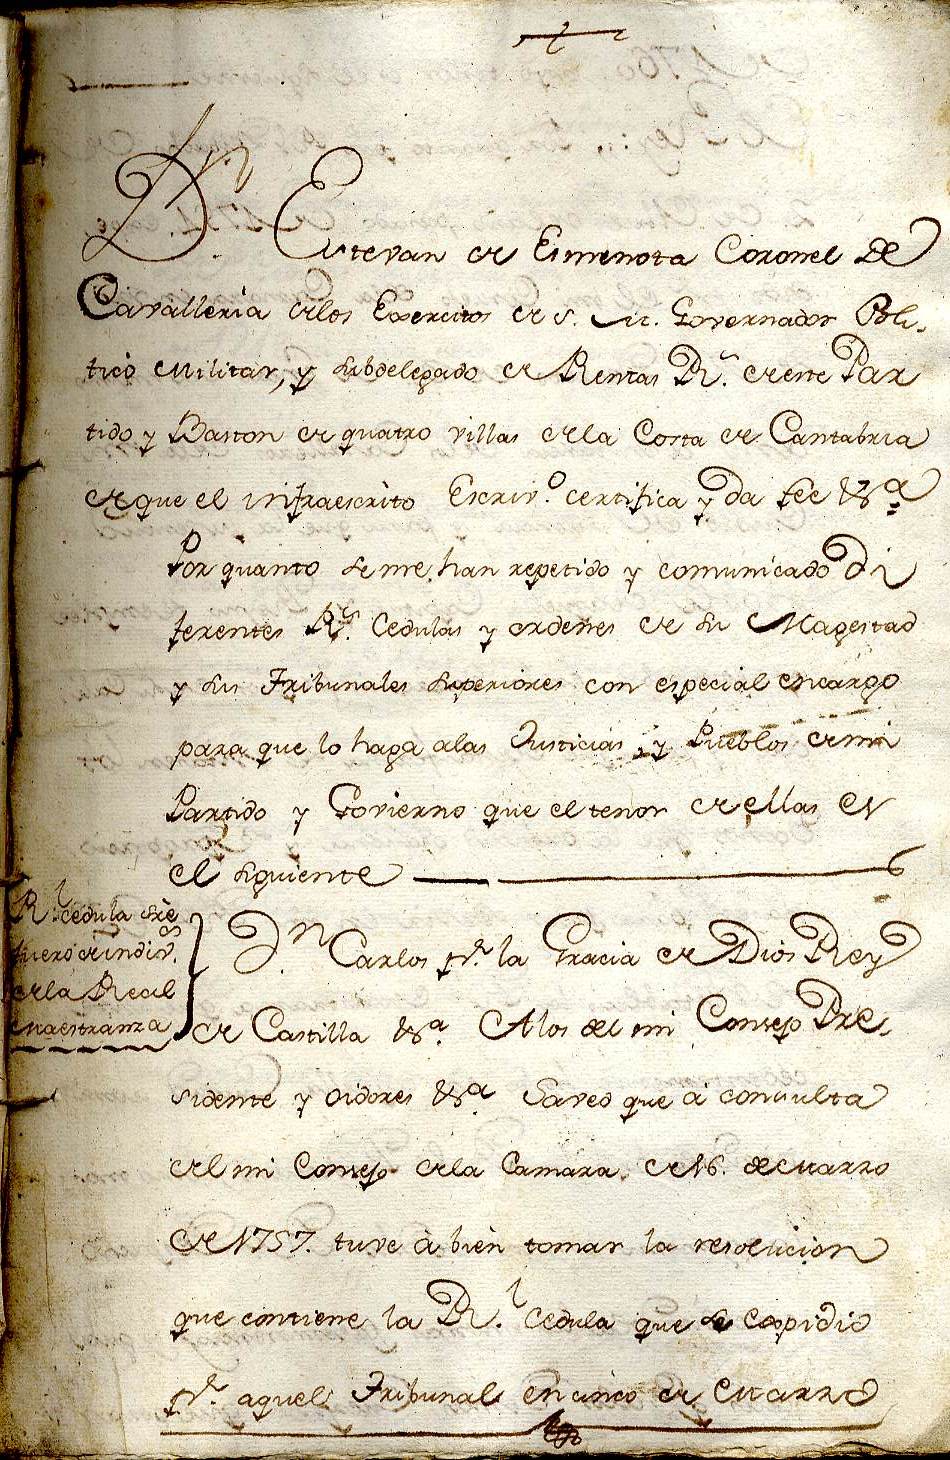 Dn. Estevan de Esmenota Coronel de
Cavalleria de los Exercitos de S. M. Governador Poli-
tico Militar, y Subdelegado de Rentas Rs. de este Par
tido y Baston de quatro villas de la Costa de Cantabria
de que el infraescrito Escrivo. certifica y da fee &a.
Por quanto se me han repetido y comunicado di
ferentes Rs. Cedulas y ordenes de su Magestad
y sus Tribunales superiores con especial encargo
para que lo haga a las Justicias, y Pueblos de mi
Partido y Govierno que el tenor de ellas es
el siguiente
Rl. cedula sre
fuero de individs.
de la Real
Maestranza
Dn. Carlos pr. la Gracia de Dios Rey
de Castilla &a. A los del mi Consejo Pre-
sidente y Oidores &a Saved que á consulta
del mi Consejo de la Camara de 16. de Marzo
de 1757. tuve á bien tomar la resolucion
que contiene la Rl. Cedula que se expidió
pr. aquel Tribunal en cinco de Marzo